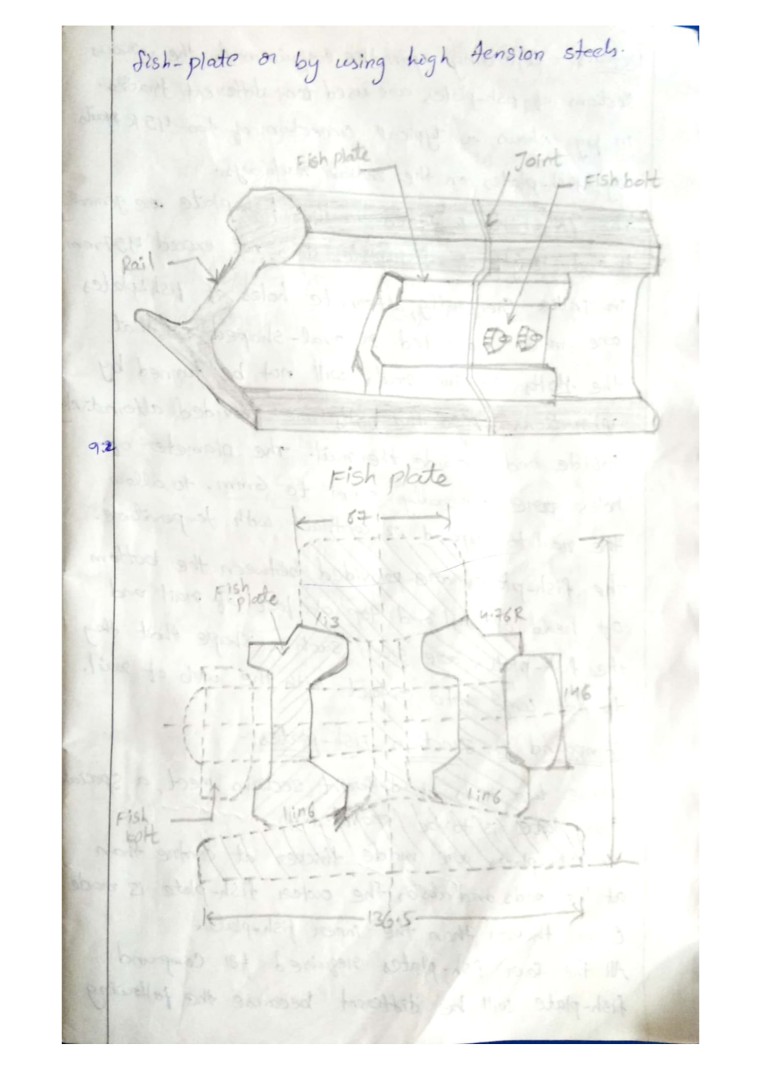 fish-plate or by using high tension steels.
Fish plate
Joint
Fish bolt
Rail
9.2
Fish plate
67
Fish
plate
1:3
4.76R
146
1in6
1in6
Fish
bolt
136.5